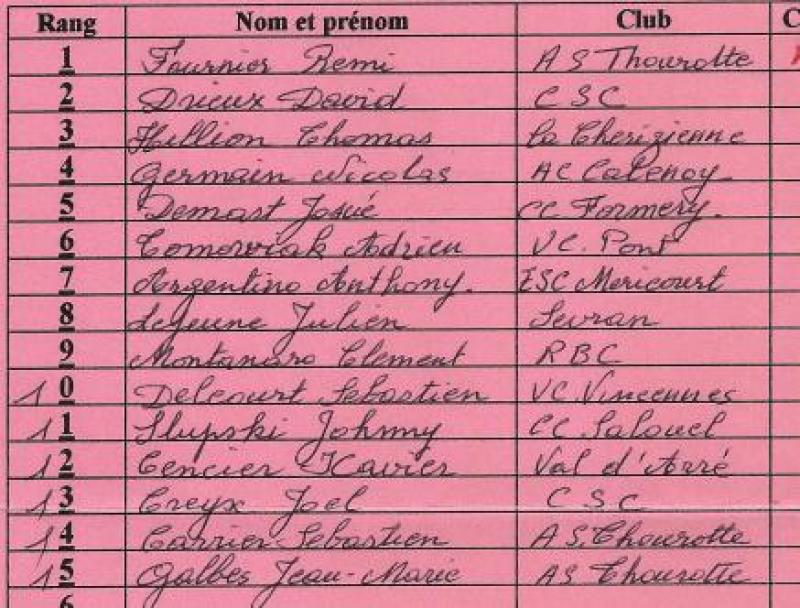 Rang Nom et prénom Club C
1 Fournier Remi A S Thourotte
2 Drieux David C S C
3 Hillion Thomas la Cherizienne
4 Germain Nicolas AC Catenoy
5 Demast Josué CC Formery.
6 Tomowiak Adrien VC. Pont
7 Argentino Anthony. ESC Mericourt
8 Lejeune Julien Sevran
9 Montanaro Clement RBC
10 Delcourt Sebastien VC. Vincennes
11 Slupski Johnny CC. Salouel
12 Cencier Xavier Val d'Arré
13 Creyx Joel C S C
14 Carrier Sebastien A S. Thourotte
15 Galbes Jean-Marie AS Thourotte
6